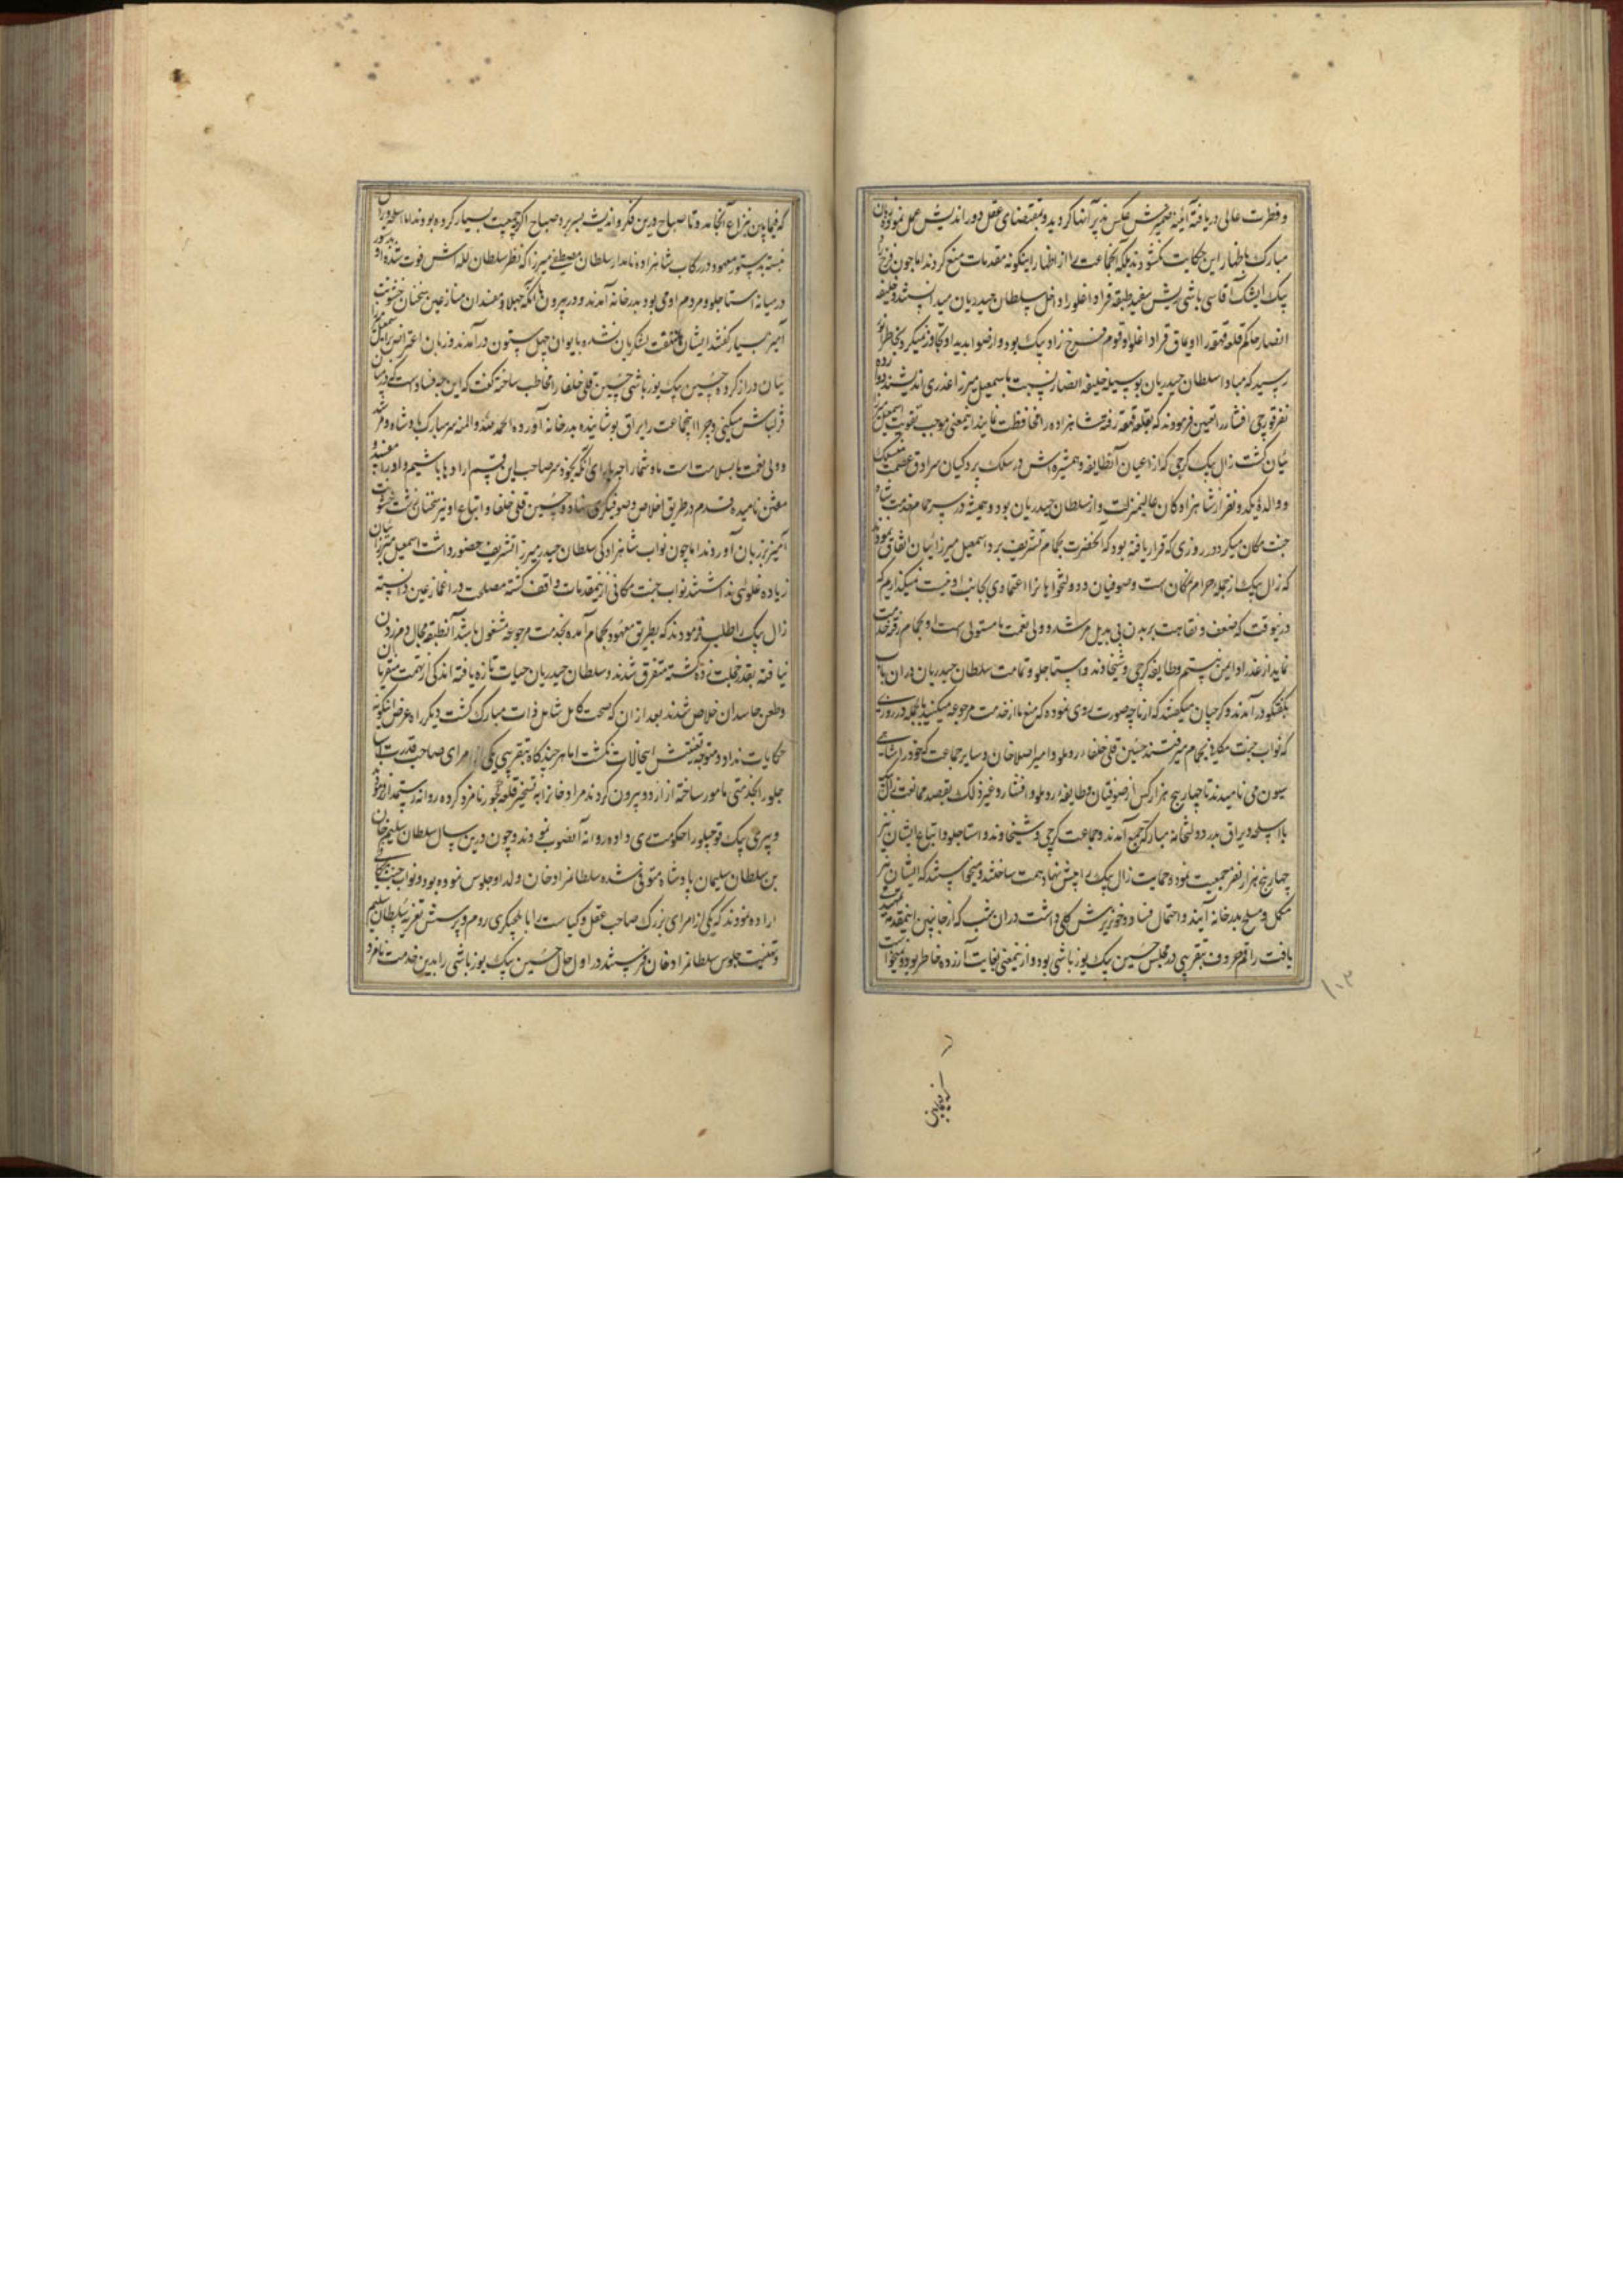 و فطرت عالی دریافته آینه ضمیرش عکس پذیر آنها گردیده و بمقتضای عقل دوراندیش عمل نموده زبان
مبارک باظهار این حکایت نگشودند بلکه آنجماعت را از اظهار اینگونه مقدمات منع کردند اما چون فرخ زاد
بیک ایشک آقاسی باشی ریش سفید طبقه قراداغلو را داخل سلطان حیدریان میدانستند و خلیفه
انصار حاکم قلعه قهقهه را اویماق قراداغلو و قوم فرخ زاد بیک بود و از صوابدید او تجاوز نمیکرد بخاطر انور
رسید که مبادا سلطان حیدریان بوسیله خلیفه انصار نسبت باسمعیل میرزا غدری اندیشند دوازده
نفر قورچی افشار را تعیین فرمودند که بقلعه قهقهه رفته شاهزاده را محافظت نمایند اینمعنی موجب تقویت اسمعیل میرزا
ئیان گشت زال بیک گرجی که از اعیان آنطایفه و همشیره اش در سلک پردگیان سرادق عصمت منسلک
و والده یکدو نفر از شاهزادگان عالیمنزلت و از سلطان حیدریان بود و همیشه در سر حمام خدمت شاه
جنت مکان میکرد در روزی که قرار یافته بود که آنحضرت بحمام تشریف برد اسمعیل میرزائیان اتفاق نمودند
که زال بیک از جمله حرام نمکان است و صوفیان و دولتخواهانرا اعتمادی بجانب او نیست نمیگذاریم که
درینوقت که ضعف و نقاهت بر بدن بی بدیل مرشد و ولی نعمت ما مستولی است او بحمام رفته خدمت
نماید از غدر او ایمن نیستیم و طایفه گرجی و شیخاوند و استاجلو و تمامت سلطان حیدریان در آن باب
بگفتگو درآمدند و گرجیان میگفتند که از ما چه صورت بدی روی نموده که منع ما از خدمت مرجوعه میکنید بالجمله در روزی
که نواب جنت مکانی بحمام میرفتند حسین قلی خلفاء روملو و امیر اصلان خان و سایر جماعت که خود را شاهی
سیون می نامیدند تا چهار پنج هزار کس از صوفیان و طایفه روملو و افشار و غیر ذلک بقصد ممانعت زال بیک
با اسلحه و یراق بدر دولتخانه مبارکه جمع آمدند و جماعت گرجی و شیخاوند و استاجلو و اتباع ایشان نیز
چهار پنج هزار نفر جمعیت نموده حمایت زال بیک را پیش نهاد همت ساختند و میخواستند که ایشان نیز
مکمل و مسلح بدرخانه آیند و احتمال فساد و خونریزش کلی داشت در آن شب که از جانبین اینمقدمه تمهید
یافت راقم حروف بتقریبی در مجلس حسین بیک یوزباشی بود و از اینمعنی بغایت آزرده خاطر بود و نمیخواست
۱۰۳
که فیمابین
که فیمابین بنزاع انجامد و تا صباح درین فکر و اندیشه بسر برد صباح اگرچه جمعیت بسیار کرده بودند اما اسلحه و یراق
نبسته بدستور معهود در رکاب شاهزاده نامدار سلطان مصطفی میرزا که نظر سلطان لله اش فوت شده او
در میانه استاجلو و مردم اومی بود بدرخانه آمدند و در بیرون با آنکه جهلا و مفسدان منازعین سخنان خشونت
آمیز بسیار گفتند ایشان ملتفت بدیگران نشده بایوان چهل ستون درآمدند و زبان اعتراض بر اسمعیل میرزا
ئیان دراز کرده حسین بیک یوزباشی حسین قلی خلفا را مخاطب ساخته گفت که این چه فساد است که در میان
قزلباش میکنی و چرا اینجماعت را یراق پوشانیده بدرخانه آورده الحمد لله و المنه سر مبارک پادشاه و مرشد
و ولی نعمت ما بسلامت است ما و شما را چه یارای آنکه بخود سر صاحب این قسم اراده ها باشیم و او را مفسد و
مفتن نامیده قدم در طریق اخلاص و صوفیگری نهاده و حسین قلی خلفا و اتباع او نیز سخنان خشونت
آمیز بر زبان آوردند اما چون نواب شاهزادگی سلطان حیدر میرزا تشریف حضور داشت اسمعیل میرزائیان
زیاده غلوئی نداشتند نواب جنت مکانی از اینمقدمات واقف گشته مصلحت در اغماض عین دانسته
زال بیک را طلب فرمودند که بطریق معهود بحمام آمده بخدمت مرجوعه مشغول باشد آنطبقه مجال دم زدن
نیافته بقدر خجلت زده گشته متفرق شدند و سلطان حیدریان حیات تازه یافته اندکی از تهمت مفتریان
و طعن حاسدان خلاص شدند بعد از آن که صحت کامل شامل ذات مبارک گشت دیگر راه عرض اینگونه
حکایات نداد و متوجه تفتیش اینحالات نگشت اما هر چند گاه بتقریبی یکی از امرای صاحب قدرت استا
جلو را بخدمتی مامور ساخته از اردو بیرون کردند مراد خانرا به تسخیر قلعه کجور نامزد کرده روانه رستمدار نمود
و پیری بیک قوچیلو را حکومت ری داده روانه آنصوب نمودند و چون درین سال سلطان سلیم خان
بن سلطان سلیمان پادشاه متوفی شده سلطان مراد خان ولد او جلوس نموده بود و نواب جنت مکانی
اراده نمودند که یکی از امرای بزرگ صاحب عقل و کیاست را بایلچیگری روم و پرسش تعزیه سلطان سلیم
و تهنیت جلوس سلطان مراد خان فرستند در اول حال حسین بیک یوزباشی را بدین خدمت نامزد